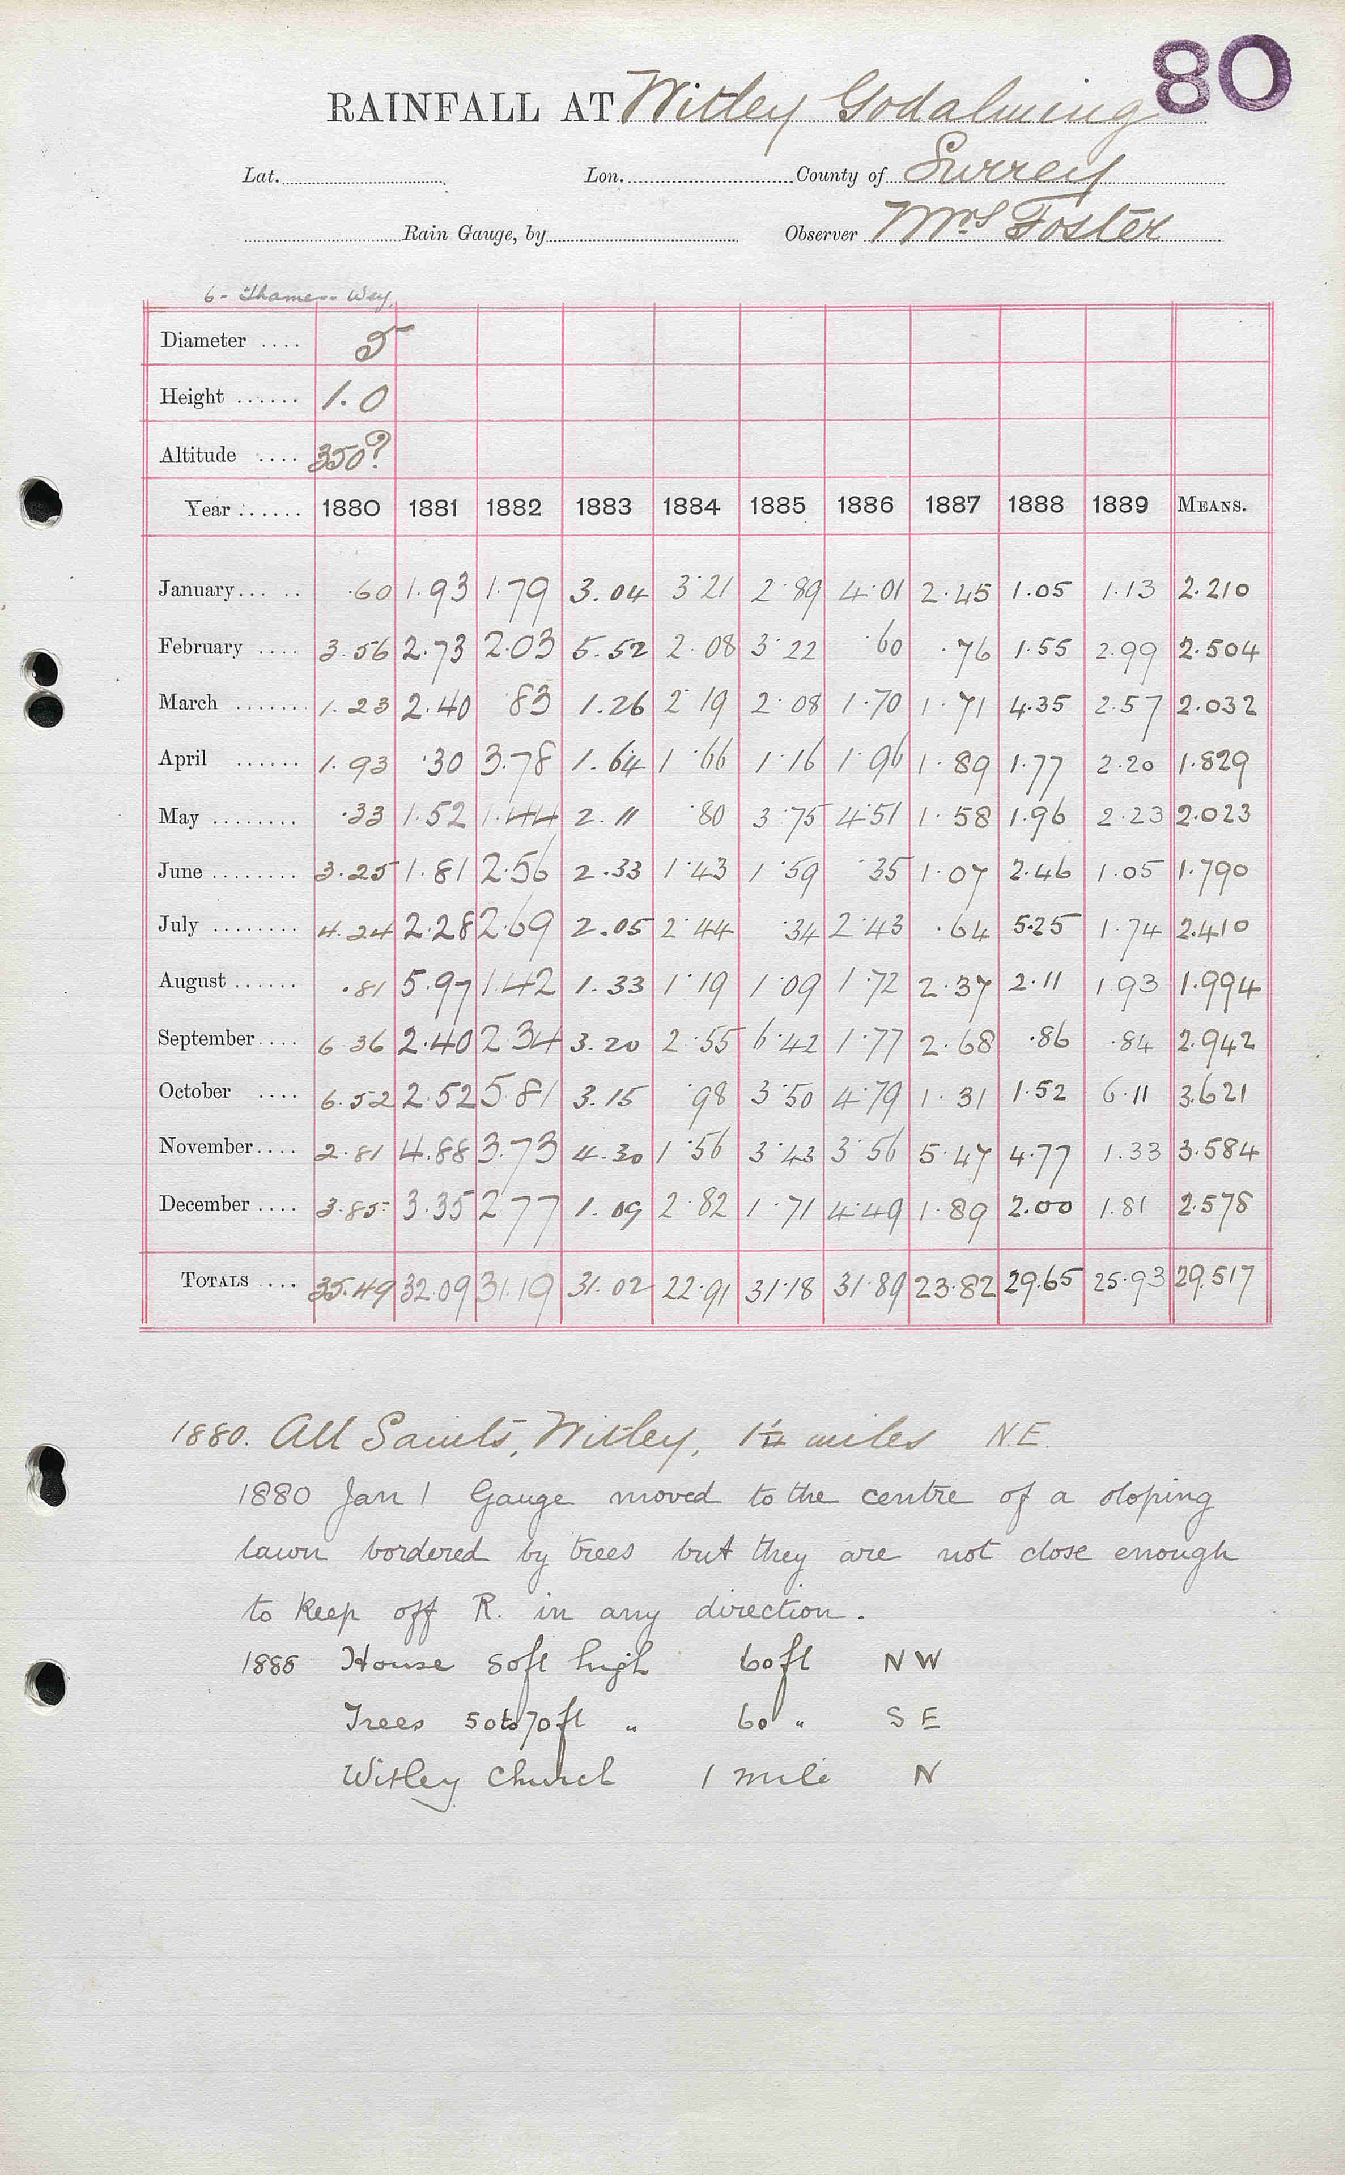 80
RAINFALL AT Witley Godalming
Lat. Lon. County of Surrey
Rain Gauge, by Observer Mrs Foster
6 - Thames - Wey.
Diameter .... 5
Height ...... 1.0
Altitude .... 350?
Year ...... 1880 1881 1882 1883 1884 1885 1886 1887 1888 1889 MEANS.
January... .. .60 1.93 1.79 3.04 3.21 2.89 4.01 2.45 1.05 1.13 2.210
February .... 3.56 2.73 2.03 5.52 2.08 3.22 .60 .76 1.55 2.99 2.504
March ....... 1.23 2.40 .83 1.26 2.19 2.08 1.70 1.71 4.35 2.57 2.032
April ...... 1.93 .30 3.78 1.64 1.66 1.16 1.96 1.89 1.77 2.20 1.829
May ........ .33 1.52 1.44 2.11 .80 3.75 4.51 1.58 1.96 2.23 2.023
June ........ 3.25 1.81 2.56 2.33 1.43 1.59 .35 1.07 2.46 1.05 1.790
July ........ 4.24 2.28 2.69 2.05 2.44 .34 2.43 .64 5.25 1.74 2.410
August ...... .81 5.97 1.42 1.33 1.19 1.09 1.72 2.37 2.11 1.93 1.994
September.... 6.36 2.40 2.34 3.20 2.55 6.42 1.77 2.68 .86 .84 2.942
October .... 6.52 2.52 5.81 3.15 .98 3.50 4.79 1.31 1.52 6.11 3.621
November.... 2.81 4.88 3.73 4.30 1.56 3.43 3.56 5.47 4.77 1.33 3.584
December .... 3.85 3.35 2.77 1.09 2.82 1.71 4.49 1.89 2.00 1.81 2.578
TOTALS .... 35.49 32.09 31.19 31.02 22.91 31.18 31.89 23.82 29.65 25.93 29.517
1880. All Saints, Witley, 1¼ miles N.E.
1880 Jan 1 Gauge moved to the centre of a sloping
lawn bordered by trees but they are not close enough
to keep off R. in any direction.
1888 House 50ft high 60ft NW
Trees 50to70ft " 60 " S E
Witley Church 1 mile N